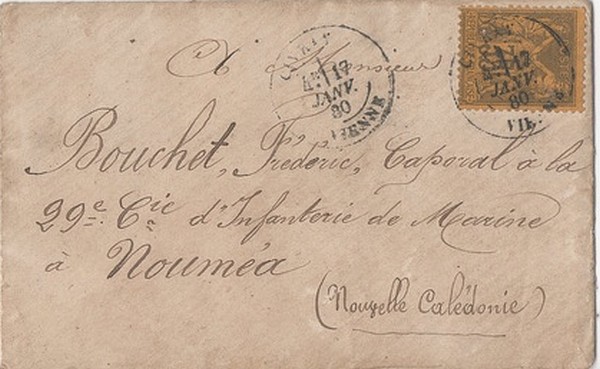 A Monsieur
Bouchet, Fréderic, Caporal à la
29e. Cie d'Infanterie de Marine
à Nouméa
(Nouvelle Calédonie)
17
JANV.
80
VIENNE
17
JANV.
80